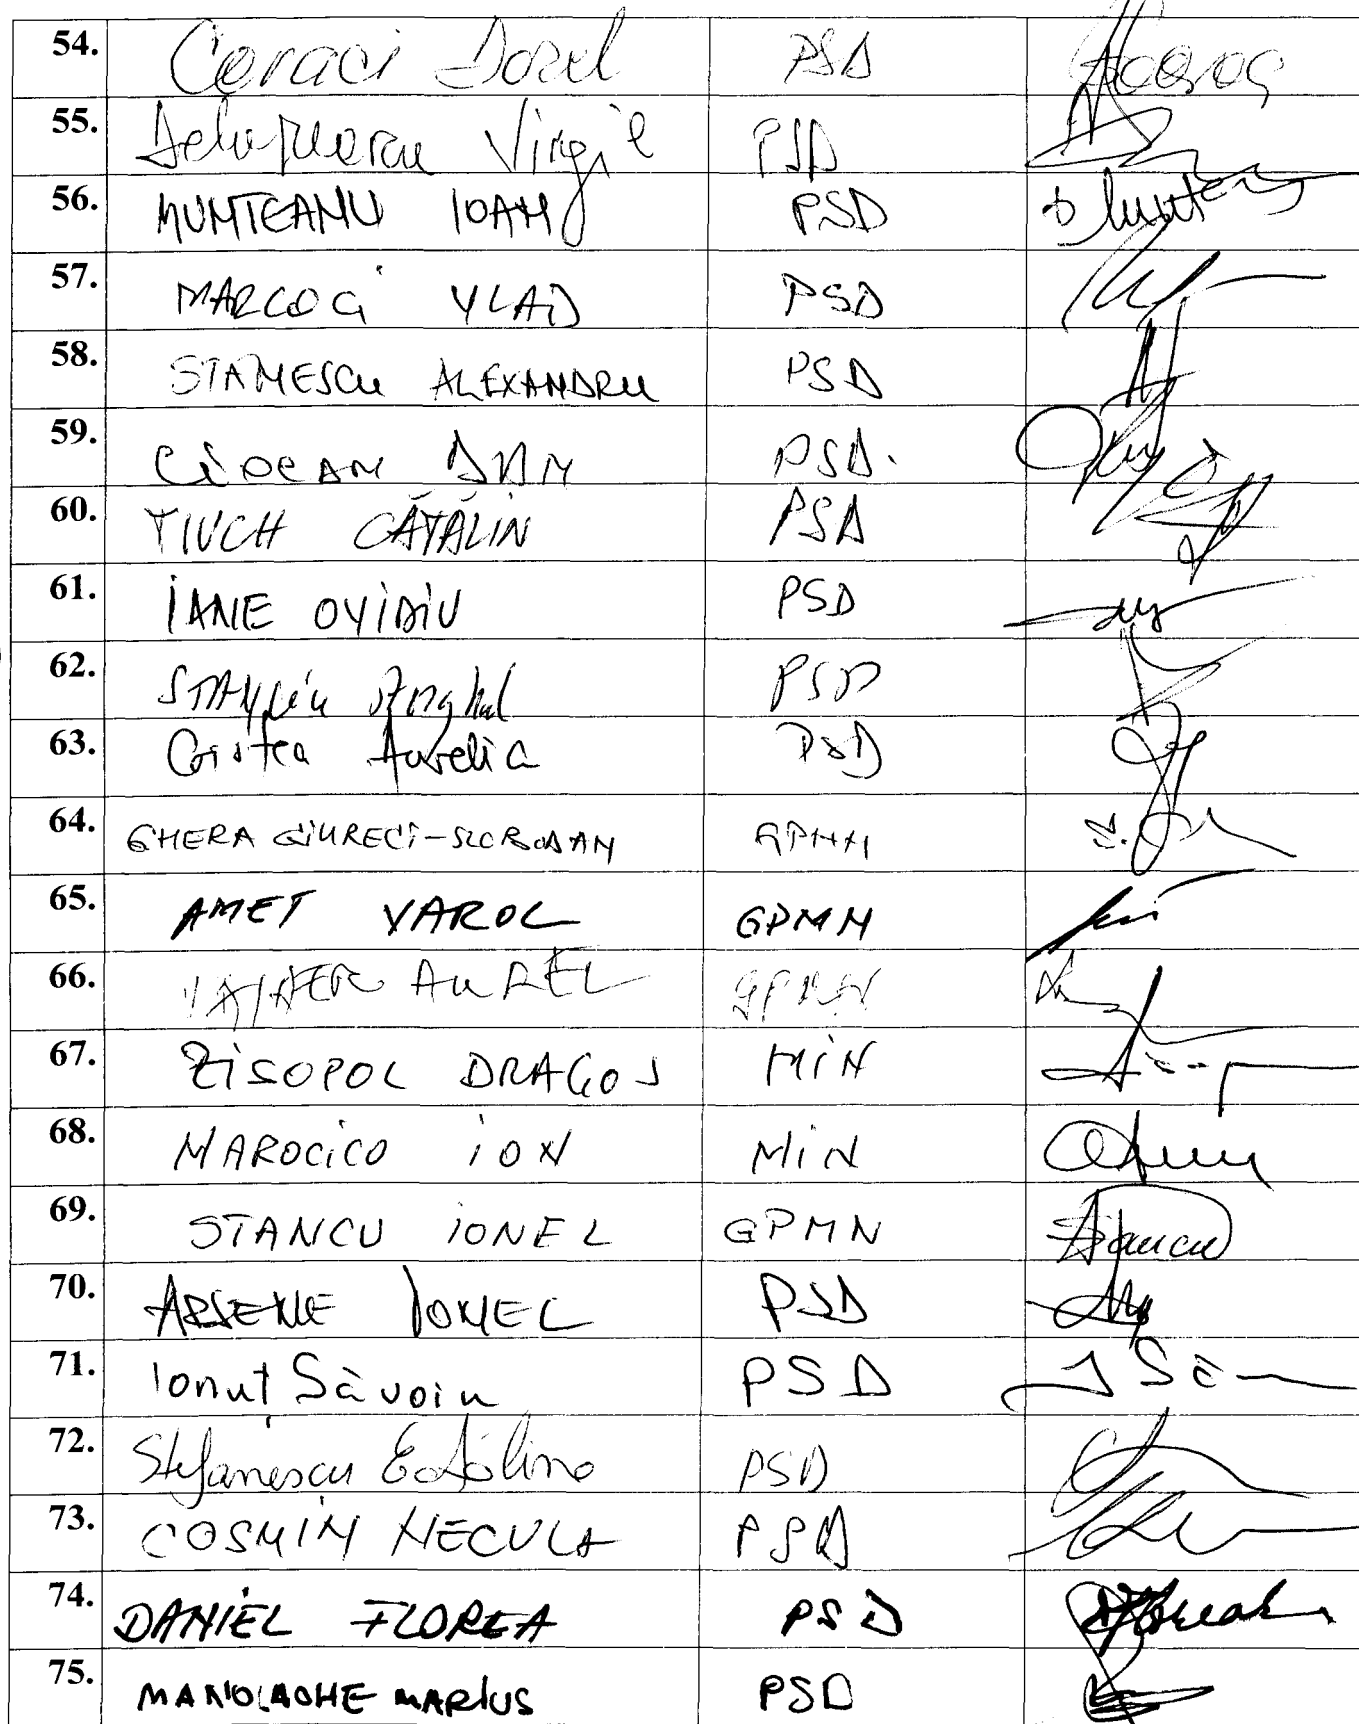 54. Coraci Dorel PSD
55. Virgil PSD
56. MUNTEANU IOAN PSD
57. MARCOCI VLAD PSD
58. STANESCU ALEXANDRU PSD
59. CIOCAN DAN PSD.
60. TIUCH CĂTĂLIN PSD
61. IANE OVIDIU PSD
62. PSD
63. Cristea Aurelia PSD
64. GHERA GIURECI-SLOBODAN GPMN
65. AMET VAROL GPMN
66. VAINER AUREL GPMN
67. ZISOPOL DRAGOS MIN
68. MAROCICO ION MIN
69. STANCU IONEL GPMN Stancu
70. ARSENE IONEL PSD
71. Ionuț Săvoiu PSD
72. Stefanescu PSD
73. COSMIN NECULA PSD
74. DANIEL FLOREA PSD
75. MANOLACHE MARIUS PSD